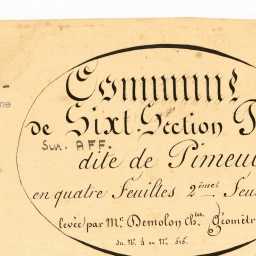 Commune
de Sixt. Section
Sur. AFF.
dite de
en quatre Feuilles 2èmes
levée par Mr. Demolon Ch. Géomètr
du No. 4 au No. 616.